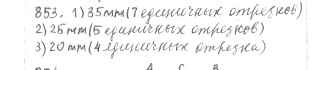 853. 1) 35мм(7 единичных отрезков)
2) 25мм(5 единичных отрезков)
3) 20мм(4 единичных отрезка)
A C B